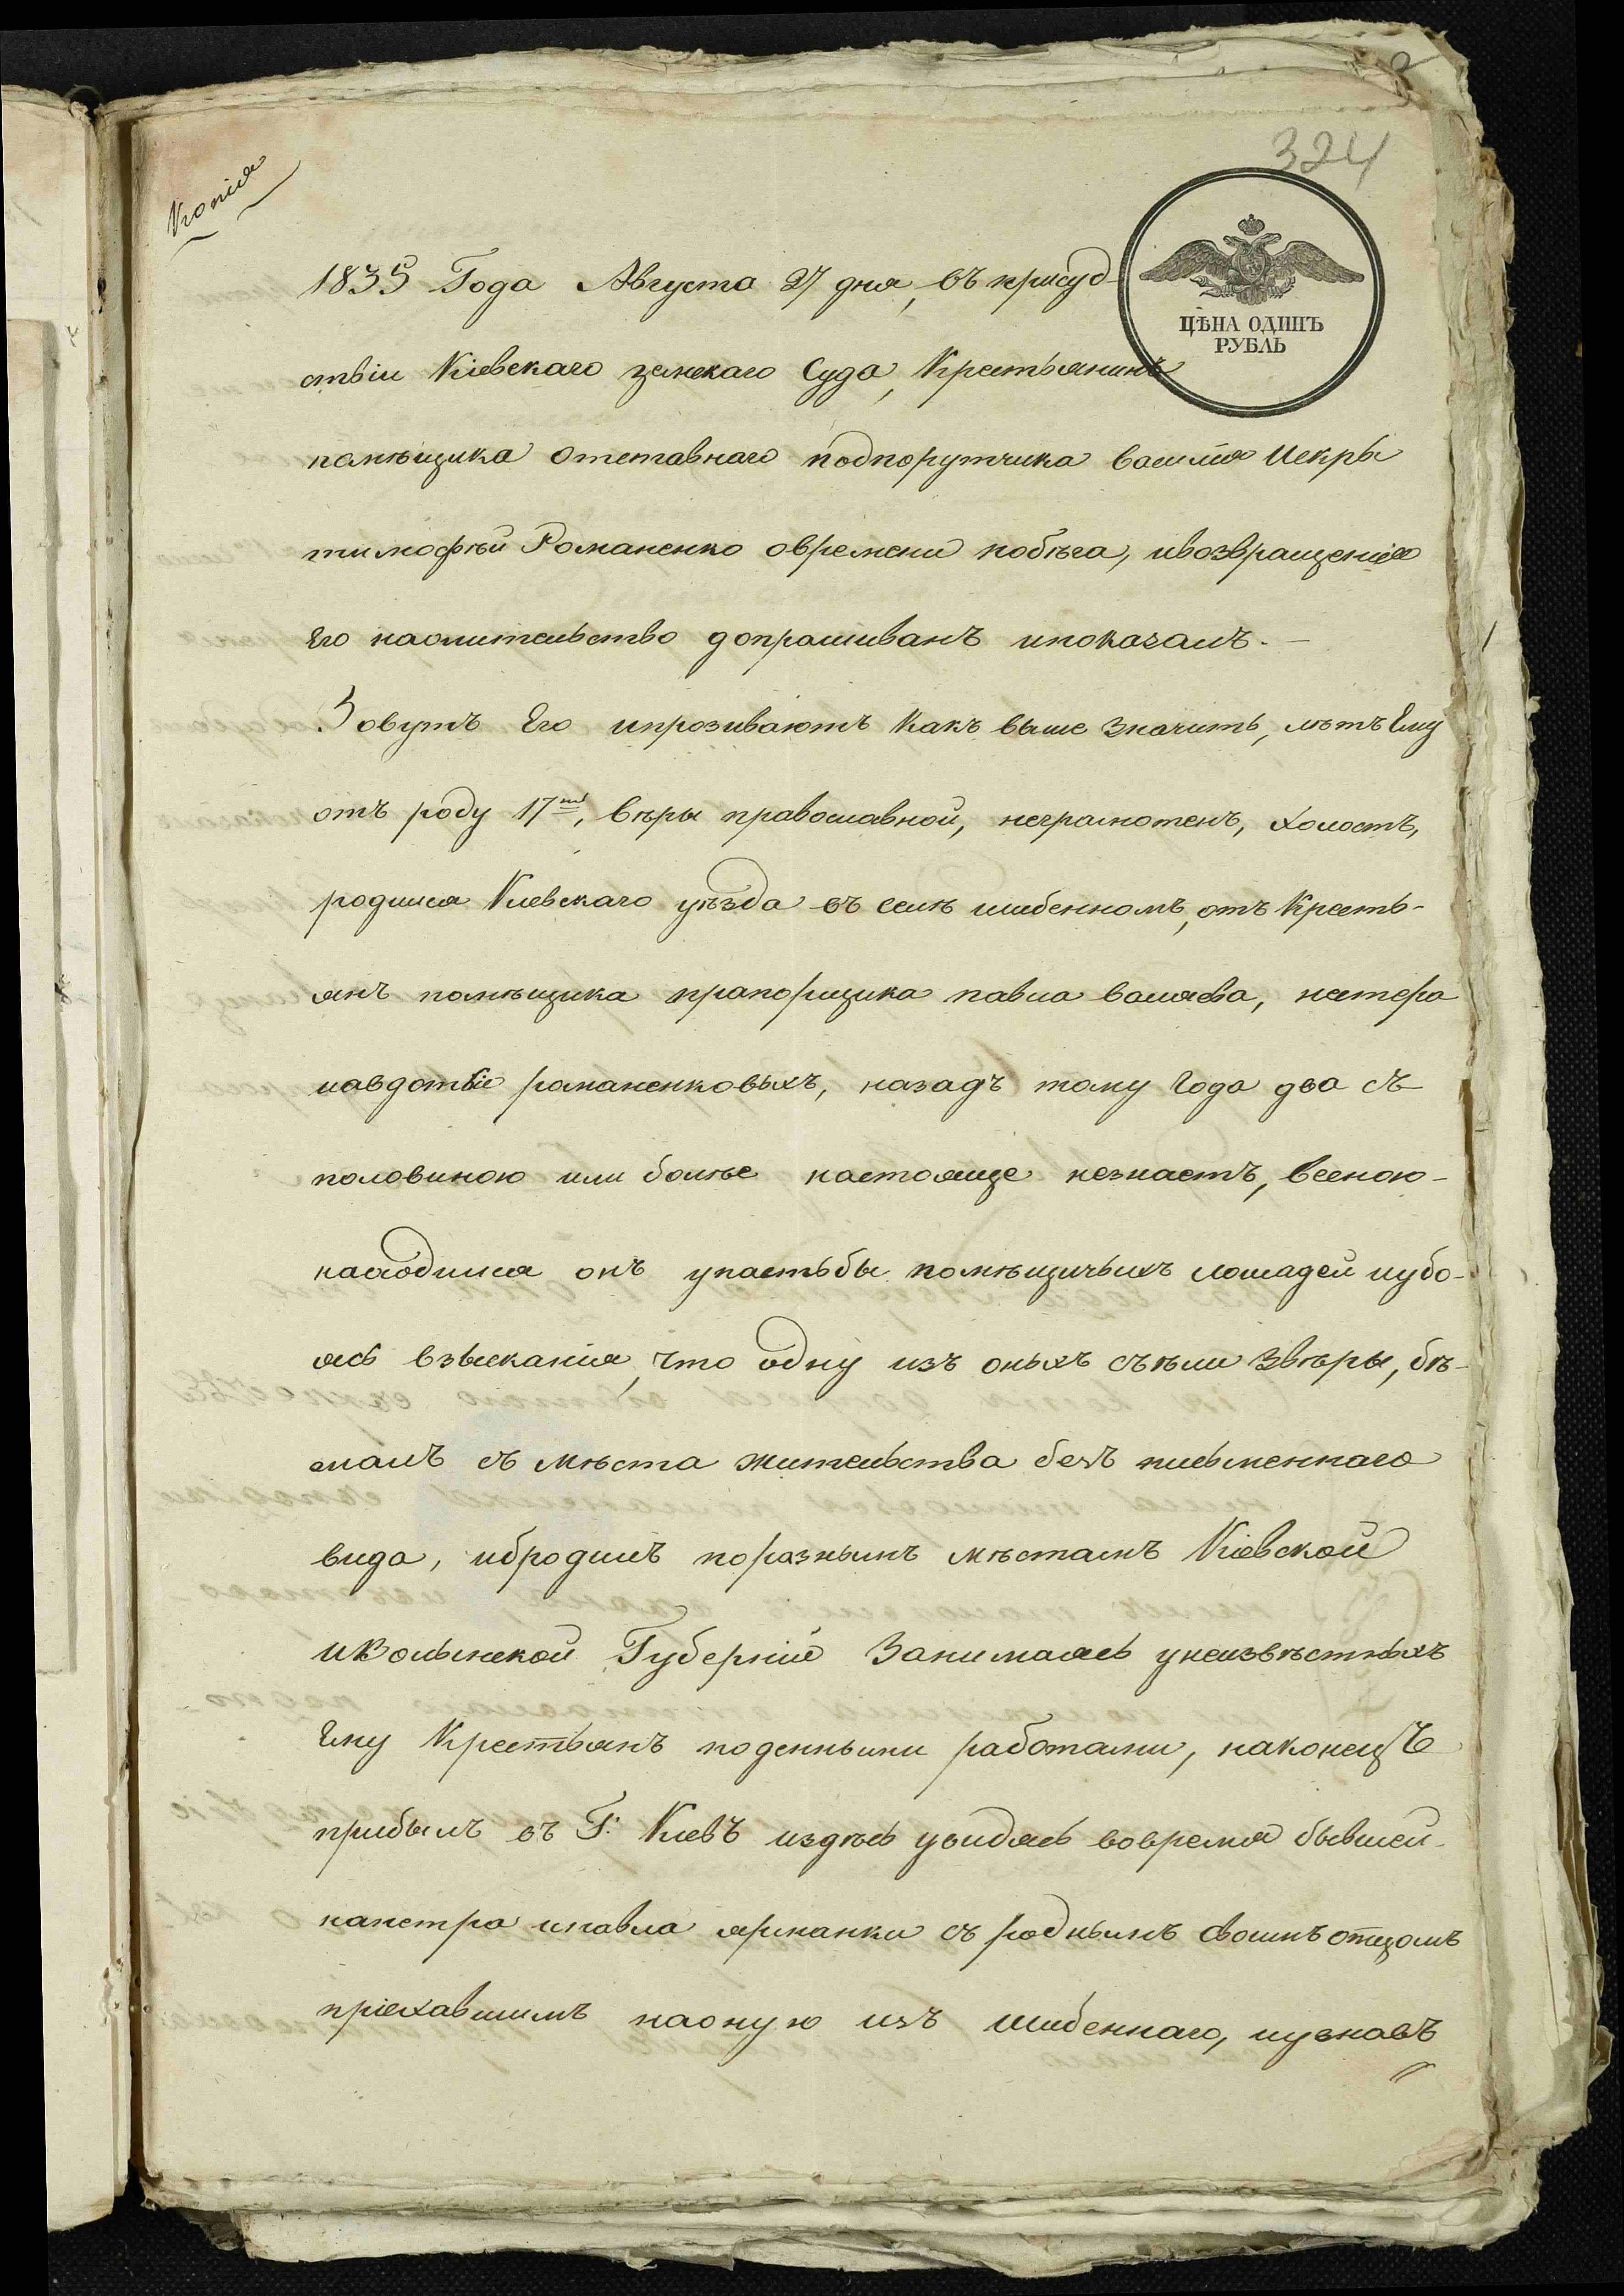 324
Копія
ЦѢНА ОДИНЪ
РУБЛЬ
1835 Года Августа 27 дня, въ присуд-
ствіи Кіевскаго земскаго Суда, Крестьянинъ
помѣщика отставнаго подпорутчика василія Искры
тимофѣй Романенко овремени побѣга, ивозвращенія
Его наожительство допрашиванъ ипоказалъ.—
Зовутъ Его ипрозиваютъ Какъ выше Значитъ, лѣтъ Ему
отъ роду 17ть, вѣры православной, неграмотенъ, холостъ,
родился Кіевскаго уѣзда въ селѣ шибенномъ, отъ Кресть-
янъ помѣщика прапорщика павла валяева, нестера
иавдотьи романенковыхъ, назадъ тому Года два съ
половиною или болѣе настояще незнаетъ, весною-
находился онъ упастьбы помѣщичьихъ лошадей иубо-
ясь взысканія, что одну изъ оныхъ съѣли Звѣры, бѣ-
жалъ съ мѣста жительства безъ письменнаго
вида, ибродилъ поразнымъ мѣстамъ Кіевской
иВолынской Губерніи Занимаясь унеизвѣстныхъ
Ему Крестьянъ поденными работами, наконецъ
прибылъ въ Г. Кіевъ издѣсь увидясь вовремя бывшей
напетра ипавла ярманки съ роднымъ своимъ отцомъ
пріехавшимъ наоную изъ шибеннаго, иузнавъ